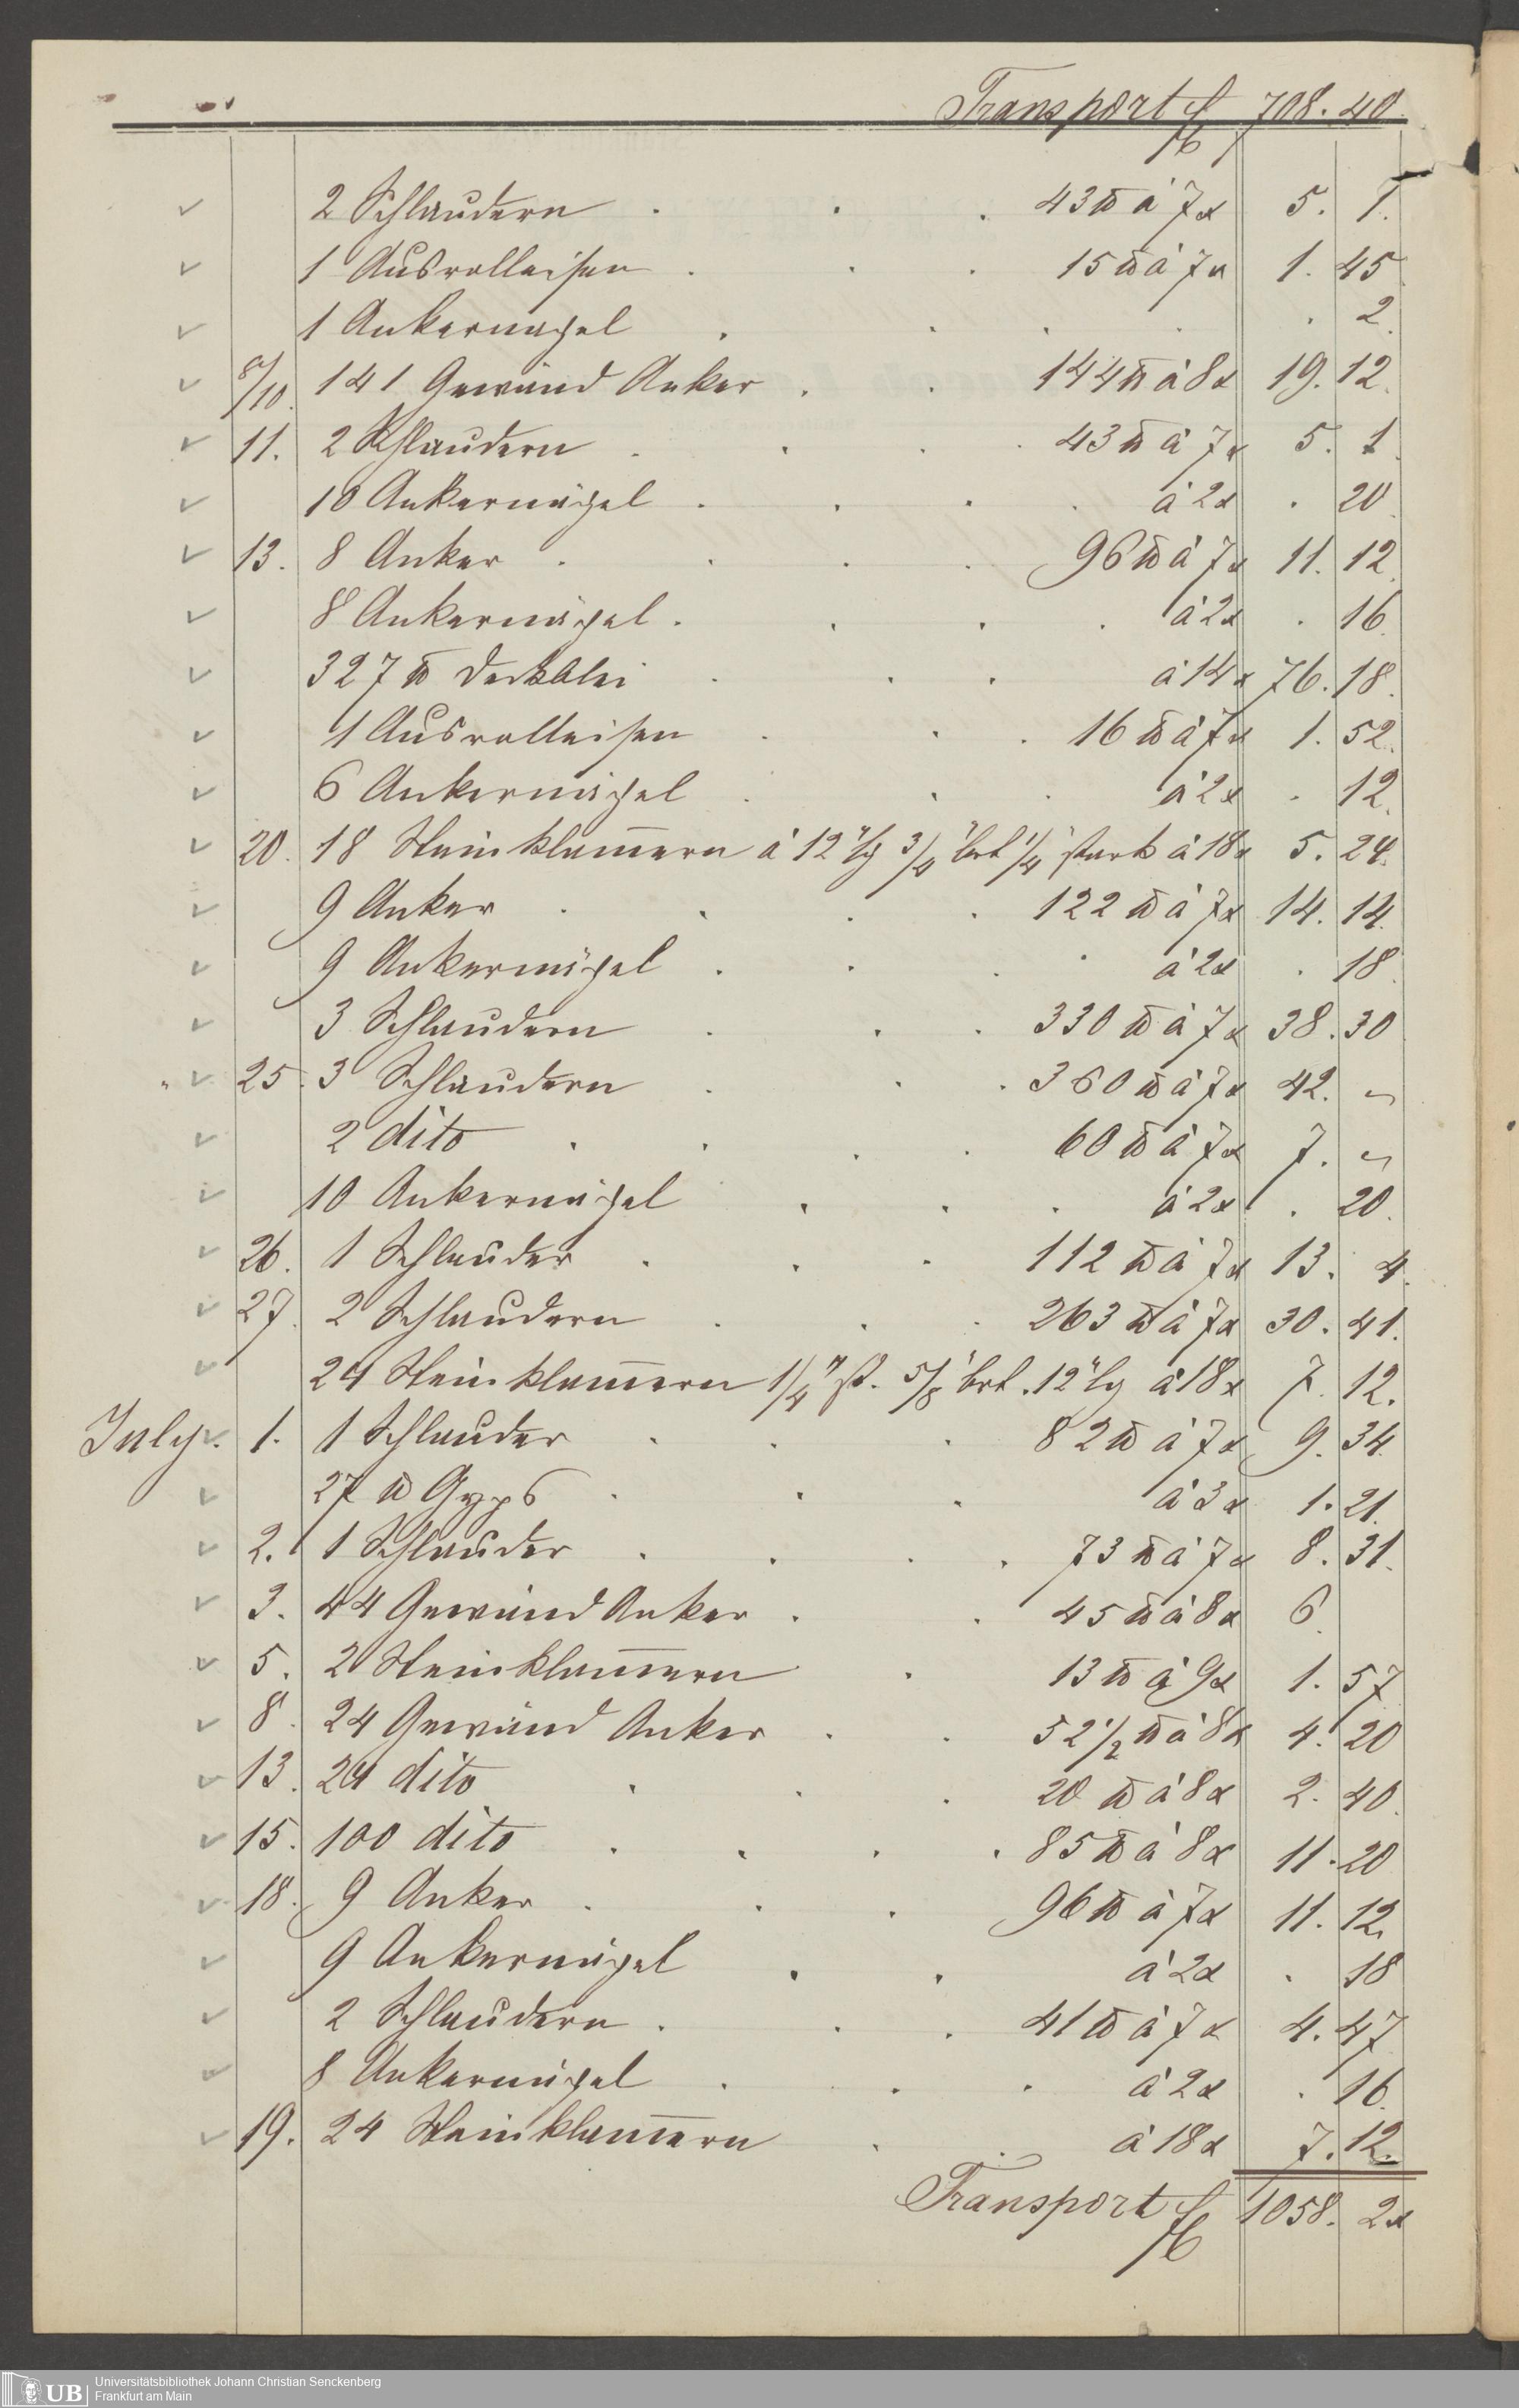 Transport f 708. 40.
2 Schlaudern . . . 43 ℔ à 7x 5. 1.
1 Ausrolleisen . . . 15 ℔ à 7x 1. 45.
1 Ankernagel . . . . . 2.
8/10. 141 Gewänd Anker . . 144 ℔ à 8x 19. 12.
11. 2 Schlaudern . . . . 43 ℔ à 7x 5. 1.
10 Ankernägel . . . . à 2x . 20.
13. 8 Anker . . . . 96 ℔ à 7x 11. 12.
8 Ankernägel . . . . à 2x . 16.
327 ℔ Deckblei . . . à 14x 76. 18.
1 Ausrolleisen . . . 16 ℔ à 7x 1. 52.
6 Ankernägel . . . à 2x . 12.
20. 18 Steinklam̅ern à 12" lg 3/4" brt 1/4" stark à 18x 5. 24.
9 Anker . . . . 122 ℔ à 7x 14. 14.
9 Ankernägel . . . . à 2x . 18.
3 Schlaudern . . . 330 ℔ à 7x 38. 30
25. 3 Schlaudern . . . 360 ℔ à 7x 42. –
2 dito . . . . 60 ℔ à 7x 7. –
10 Ankernägel . . . à 2x . 20.
26. 1 Schlauder . . . 112 ℔ à 7x 13. 4.
27. 2 Schlaudern . . . 263 ℔ à 7x 30. 41.
24 Steinklam̅ern 1/4" st. 5/8" brt. 12" lg à 18x 7. 12.
July. 1. 1 Schlauder . . . 82 ℔ à 7x 9. 34.
27 ℔ Gyps . . . à 3x 1. 21.
2. 1 Schlauder . . . . 73 ℔ à 7x 8. 31.
3. 44 Gewänd Anker . . 45 ℔ à 8x 6.
5. 2 Steinklam̅ern . 13 ℔ à 9x 1. 57
8. 24 Gewänd Anker . . 52 1/2 ℔ à 8x 4. 20
13. 24 dito . . . 20 ℔ à 8x 2. 40.
15. 100 dito . . . . 85 ℔ à 8x 11. 20
18. 9 Anker . . . 96 ℔ à 7x 11. 12.
9 Ankernägel . . à 2x . 18
2 Schlaudern . . . 41 ℔ à 7x 4. 47
8 Ankernägel . . . à 2x . 16.
19. 24 Steinklam̅ern . . à 18x 7. 12.
Transport f 1058. 2x
UB
Universitätsbibliothek Johann Christian Senckenberg
Frankfurt am Main